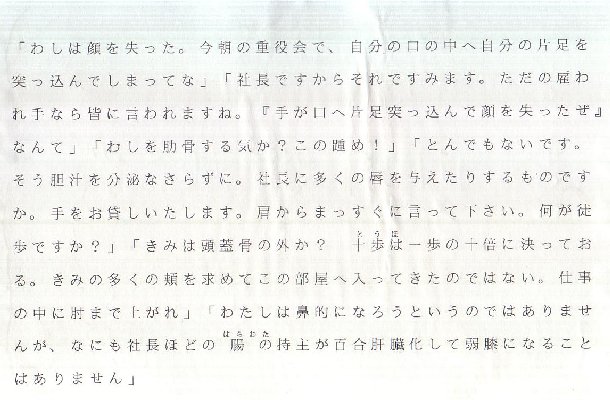 「わしは顔を失った。今朝の重役会で、自分の口の中へ自分の片足を
突っ込んでしまってな」「社長ですからそれですみます。ただの雇わ
れ手なら皆に言われますね。『手が口へ片足突っ込んで顔を失ったぜ』
なんて」「わしを肋骨する気か？この踵め！」「とんでもないです。
そう胆汁を分泌なさらずに。社長に多くの唇を与えたりするものです
か。手をお貸しいたします。肩からまっすぐに言って下さい。何が徒
歩ですか？」「きみは頭蓋骨の外か？　十歩は一歩の十倍に決ってお
る。きみの多くの頬を求めてこの部屋へ入ってきたのではない。仕事
の中に肘まで上がれ」「わたしは鼻的になろうというのではありませ
んが、なにも社長ほどの腸の持主が百合肝臓化して弱膝になること
はありません」